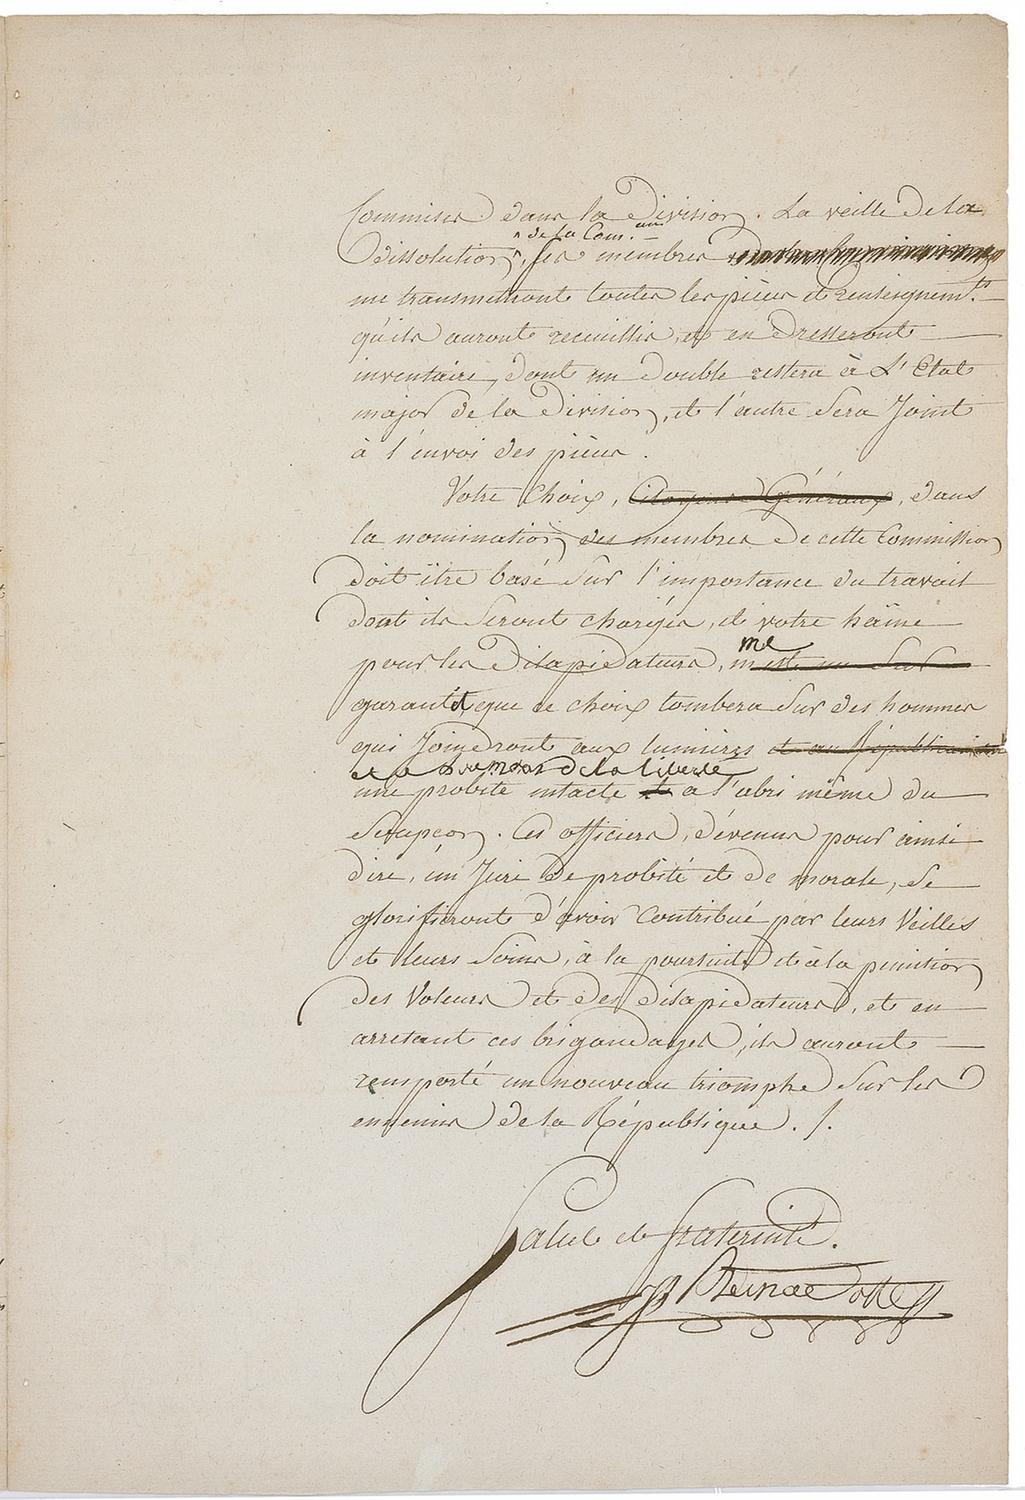 Commises dans la Division. La veille de la
de la Com.on
Dissolution, ses membres
me transmettront toutes les pièces et renseignem.ts
qu'ils auront recueillis, et en dresseront
inventaire, dont un double restera à L'Etat
major de la Division, et l'autre sera Joint
à l'envoi des pièces.
Votre choix, Citoyens Généraux, dans
la nomination des membres de cette Commission
doit être basé sur l'importance du travail
dont ils seront chargés, et votre haine
me
pour les Dilapidateurs, m'est un Sûr
garantit que ce choix tombera sur des hommes
qui Joindront aux lumières et au Républicanisme
et a de la liberté
une probité intacte et a l'abri même du
Soupçon. Ces officiers, dévenus pour ainsi
dire, un Juré de probité et de morale, se
glorifieront d'avoir Contribué par leurs Veilles
et leurs Soins, à la poursuite et à la punition
des Voleurs et des dilapidateurs, et en
arretant ces brigandages, ils auront
remporté un nouveau triomphe sur les
ennemis de la République. /.
Salut et fraternité.
J Bernadotte